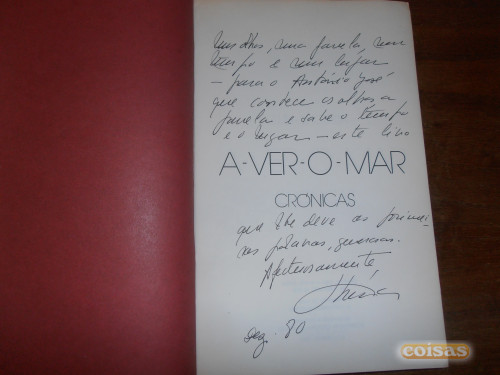 Uns olhos, uma janela, um
tempo e um lugar
— para o António José
que conhece os olhos a
janela e sabe o tempo
e o lugar — este livro
A-VER-O-MAR
CRÓNICAS
que lhe deve as primei-
ras palavras,
Afectuosamente
dez. 80
coisas